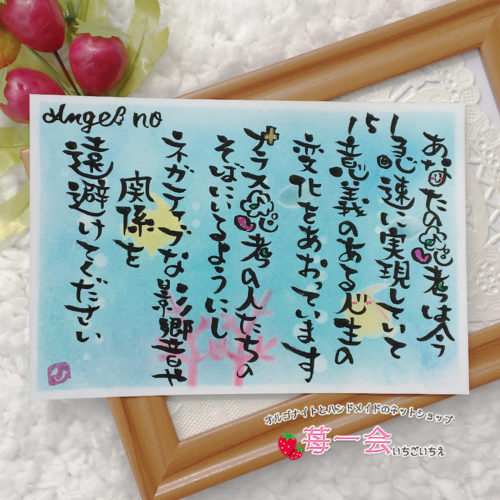 Angel no
あなたの思考は今
急速に実現していて
意義のある人生の
変化をあおっています
プラス思考の人たちの
そばにいるようにし
ネガティブな影響や
関係を
遠避けてください
オルゴナイトとハンドメイドのネットショップ
苺一会いちごいちえ